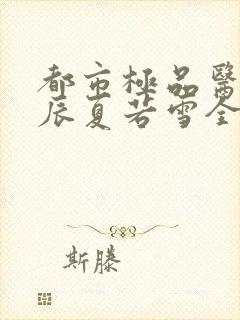 都市極品醫
辰夏若雪全
斯滕